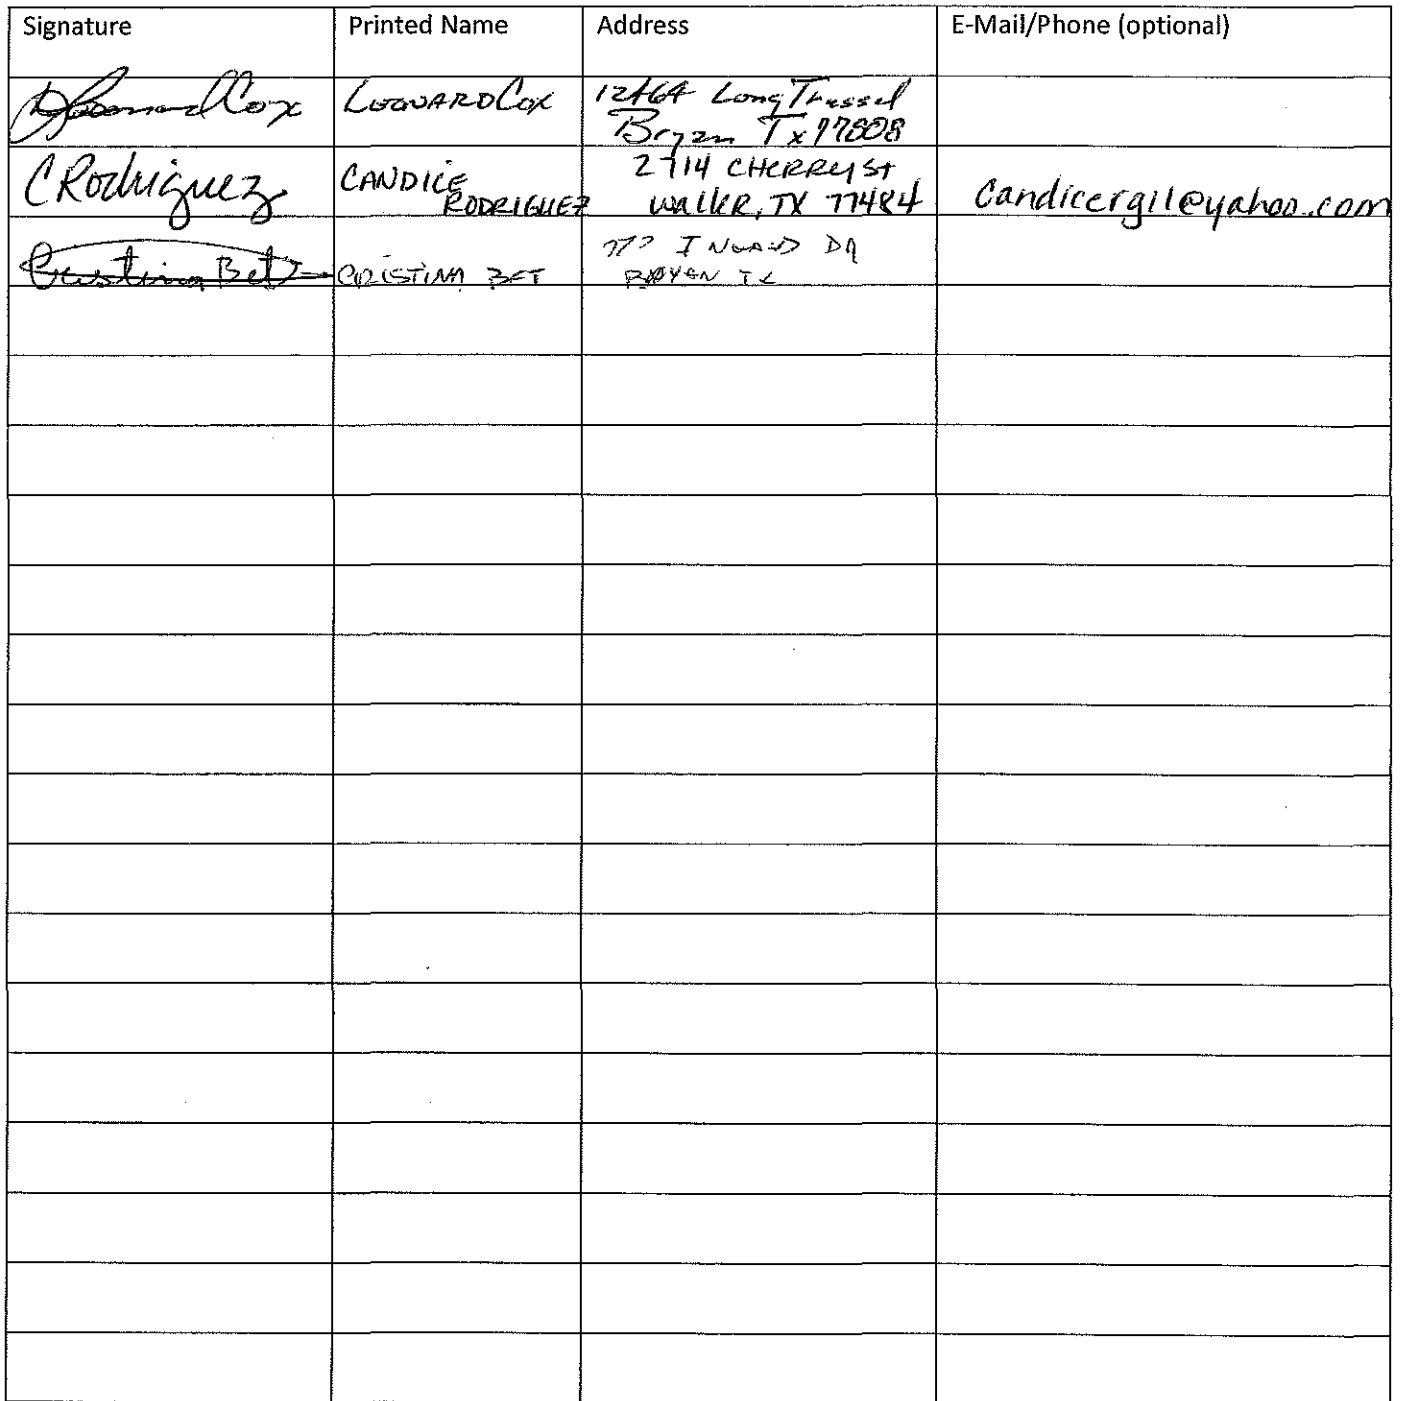 Signature Printed Name Address E-Mail/Phone (optional)
Leonard Cox LEONARD Cox 12464 Long Trussel
Bryan Tx 77808
CRodriguez CANDICE RODRIGUEZ 2714 CHERRY St
WallER, TX 77484 Candicergil@yahoo.com
Cristina Bet CRISTINA BET DR
BRYAN TX